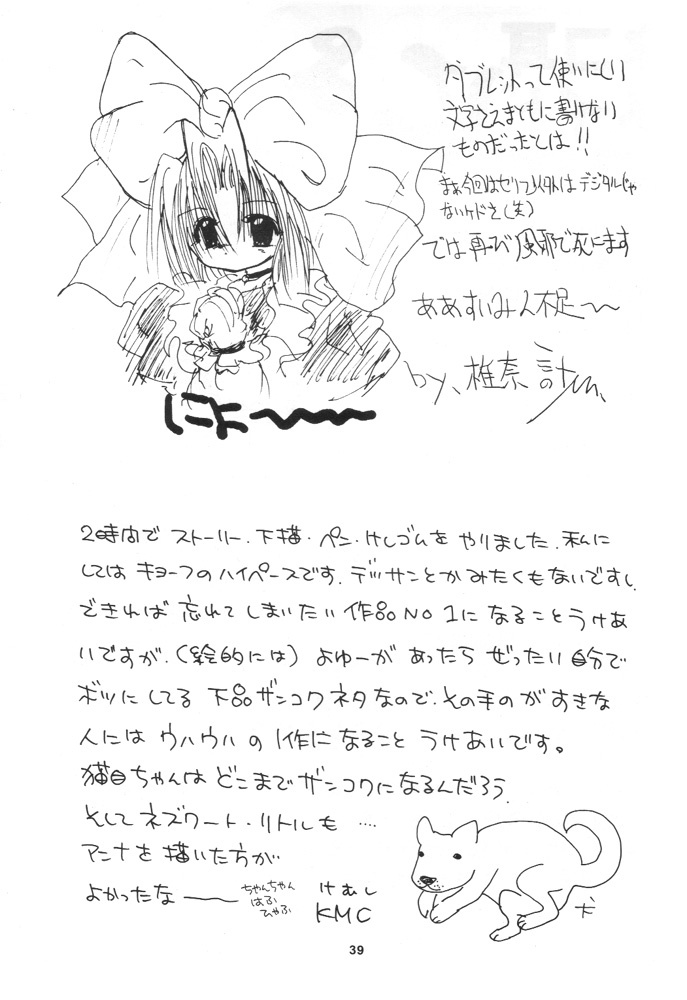 タブレットって使いにくい
文字さえまともに書けない
ものだったとは!!
まぁ今回はセリフ以外はデジタルじゃ
ないケドさ(笑)
では再び風邪で死にます
ああすいみん不足〜〜
by、椎奈
にょ〜〜〜
2時間で ストーリー.下描・ペン・けしゴムを やりました. 私に
しては キョーフのハイペースです. デッサンとか みたくもないですし.
できれば 忘れて しまいたい 作品 NO 1に なること うけあ
いですが.(絵的には) よゆーが あったら ぜったい 自分で
ボツに してる 下品ザンコクネタ なので. その手の が すきな
人には ウハウハ の 1作に なること うけあいです。
猫目ちゃんは どこまで ザンコクに なるんだろう.
そして ネズワート・リトルも ....
アンナを 描いた方が
よかったな〜〜
ちゃんちゃん
はふ
ひゃふ
けむし
KMC
犬
39